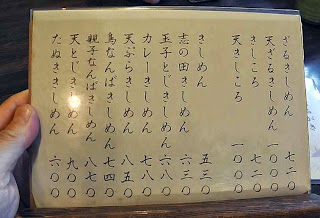 ざるきしめん 七二〇
天ざるきしめん 一〇〇〇
きしころ 七二〇
天きしころ 一〇〇〇
きしめん 五三〇
志の田きしめん 六三〇
玉子とじきしめん 六八〇
カレーきしめん 七八〇
天ぷらきしめん 八五〇
鳥なんばきしめん 七四〇
親子なんばきしめん 八七〇
天とじきしめん 九〇〇
たぬききしめん 六〇〇